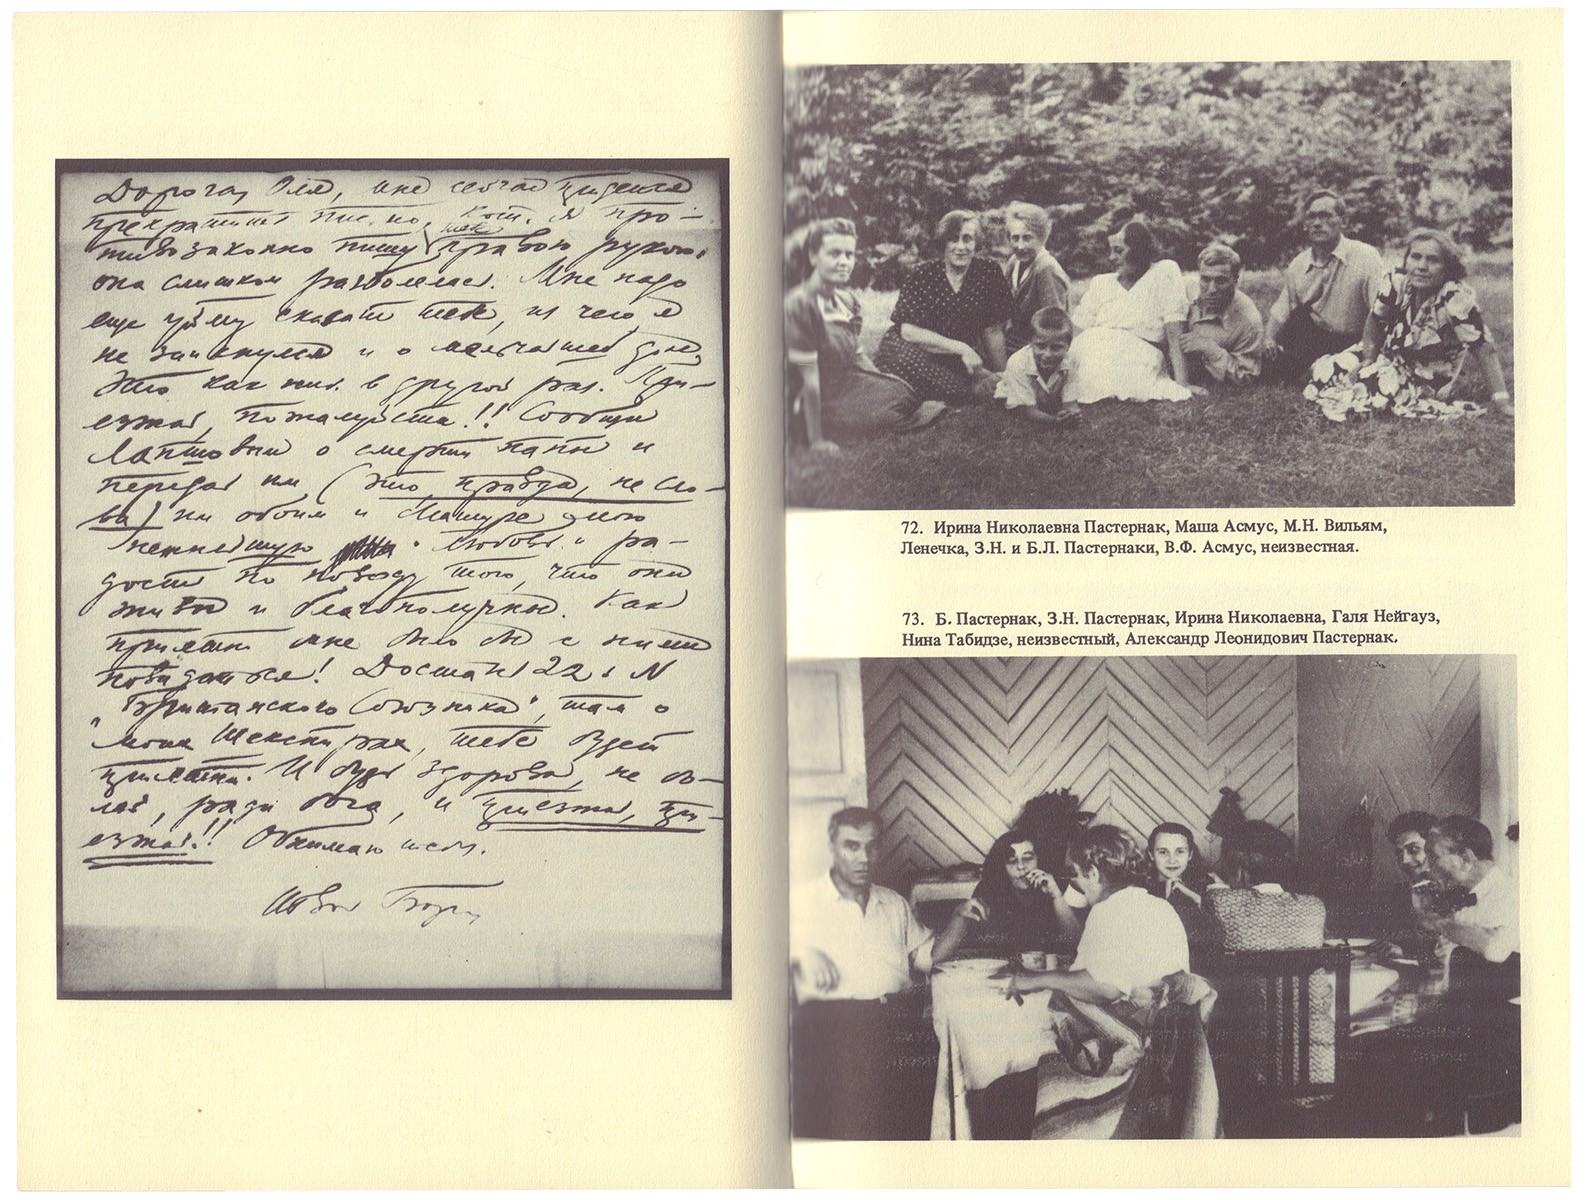 Дорогая Оля, мне сейчас придется
прекратить письмо, я про-
тивозаконно пишу правою рукою,
она слишком разболелась. Мне надо
еще уйму сказать тебе, из чего я
не заикнулся и о мельчайшей доле.
Это как ниб. в другой раз. При-
езжай, пожалуйста!! Сообщи
Лапшовым о смерти папы и
передай им (это правда, не сло-
ва) им обоим и Машуре мою
нежнейшую любовь и ра-
дость по поводу того, что они
живы и благополучны. Как
приятно мне было бы с ними
повидаться! Достань 22й N
"Британского Союзника", там о
моих Шекспирах, тебе будет
приятно. И будь здорова, не бо-
лей, ради бога, и приезжай, при-
езжай!! Обнимаю тебя.
Твой Боря
72. Ирина Николаевна Пастернак, Маша Асмус, М.Н. Вильям,
Ленечка, З.Н. и Б.Л. Пастернаки, В.Ф. Асмус, неизвестная.
73. Б. Пастернак, З.Н. Пастернак, Ирина Николаевна, Галя Нейгауз,
Нина Табидзе, неизвестный, Александр Леонидович Пастернак.